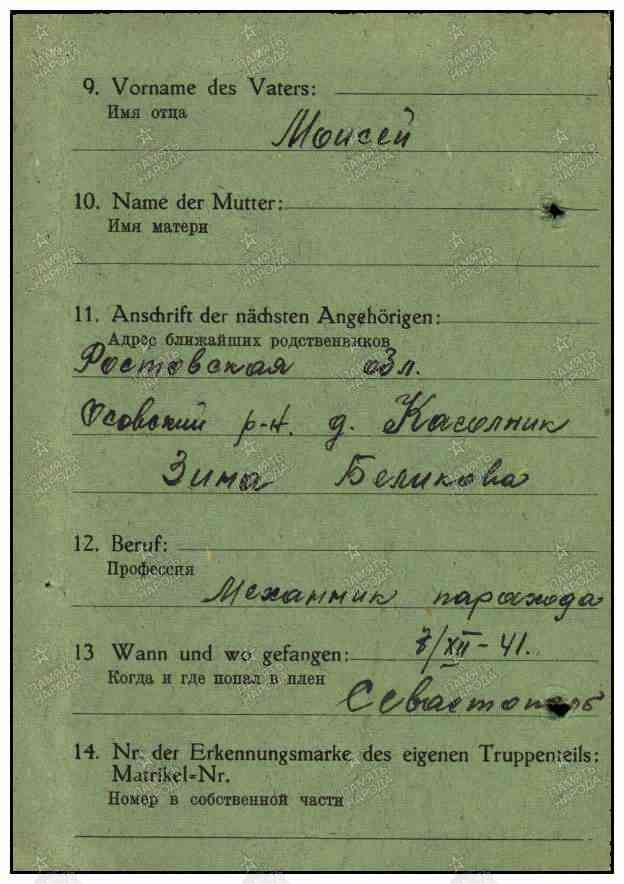 9. Vorname des Vaters:
Имя отца
Моисей
10. Name der Mutter:
Имя матери
11. Anschrift der nächsten Angehörigen:
Адрес ближайших родственников
Ростовская обл.
Осовский р-н. д. Касолник
Зина Беликова
12. Beruf:
Профессия
Механник парахода
13 Wann und wo gefangen:
7/XII - 41.
Когда и где попал в плен
Севастополь
14. Nr. der Erkennungsmarke des eigenen Truppenteils:
Matrikel=Nr.
Номер в собственной части